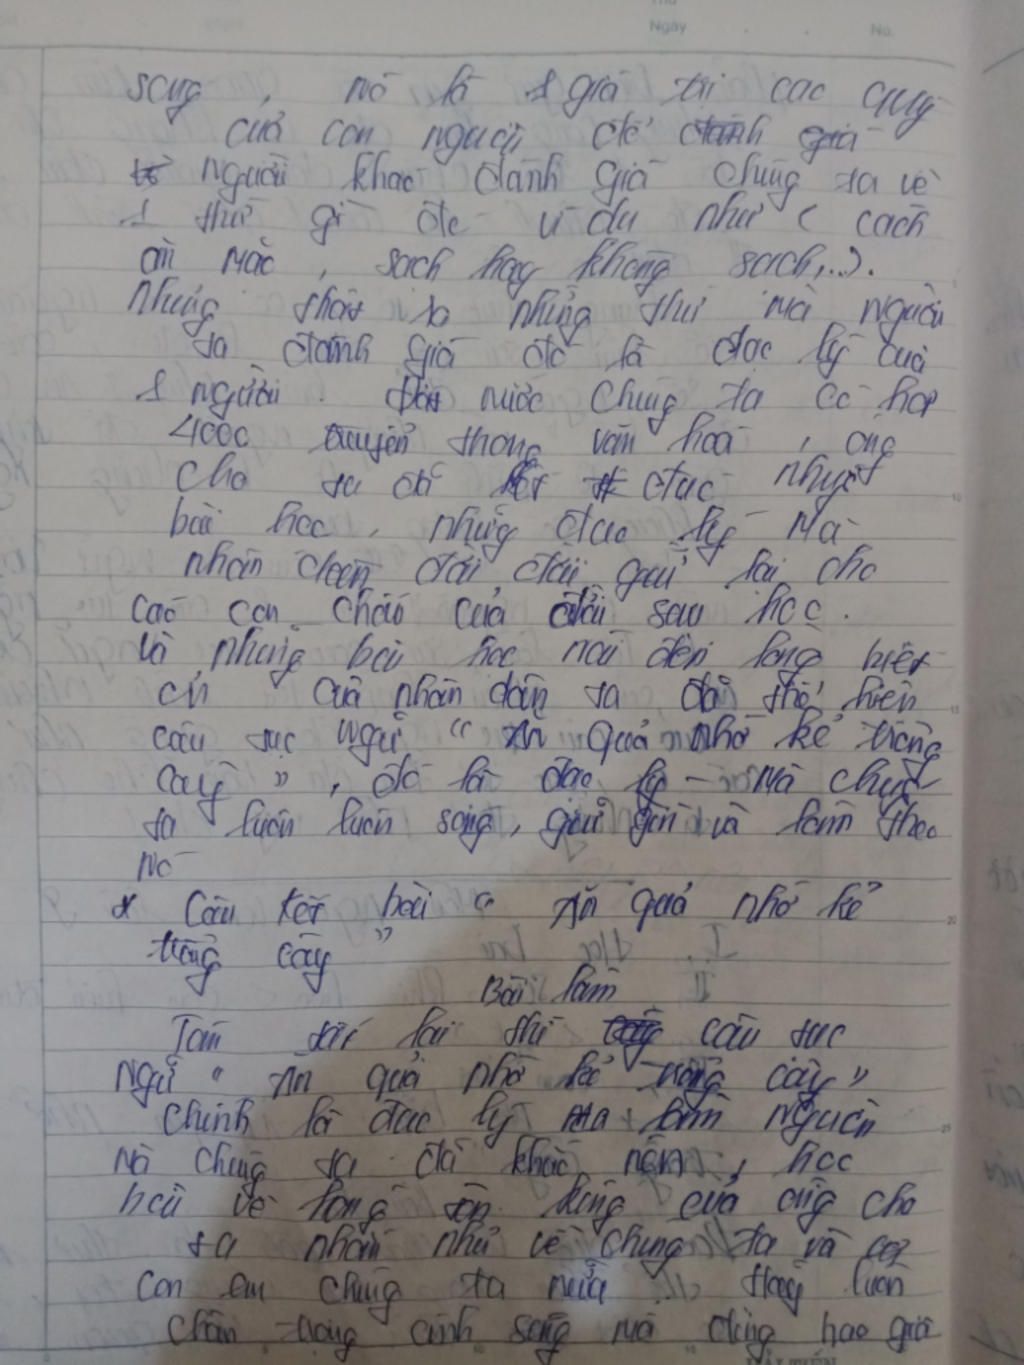 Ngày No.
sống, nó là 1 giá trị cao quý
của con người, để
người khác đánh giá chúng ta về
1 thứ gì đó ví dụ như ( cách
ăn mặc, sạch hay không sạch,...).
Nhưng những thứ mà người
ta đánh giá đó là đạo lý của
1 người. nước chúng ta có hơn
4000 truyền thống văn hoá, ông
cha ta đã đúc nhựt
bài học, những đạo lý mà
nhân dân để lại cho
các con cháu của đời sau học.
Và những bài học nói đến lòng biết
ơn của nhân dân ta, đã thể hiện
câu tục ngữ " Ăn quả nhớ kẻ trồng
cây ", đó là đạo lý mà chúng
ta luôn luôn sống, giữ gìn và làm theo
nó
* Câu kết bài " Ăn quả nhớ kẻ
trồng cây "
Bài làm
Tóm lại thì câu tục
ngữ " Ăn quả nhớ kẻ trồng cây "
chính là đạo lý làm người
mà chúng ta đã khắc, học
bài về lòng của ông cha
ta nhắn nhủ về chúng ta và
con em chúng ta nữa. Hãy luôn
trân trọng sống mà đừng bao giờ